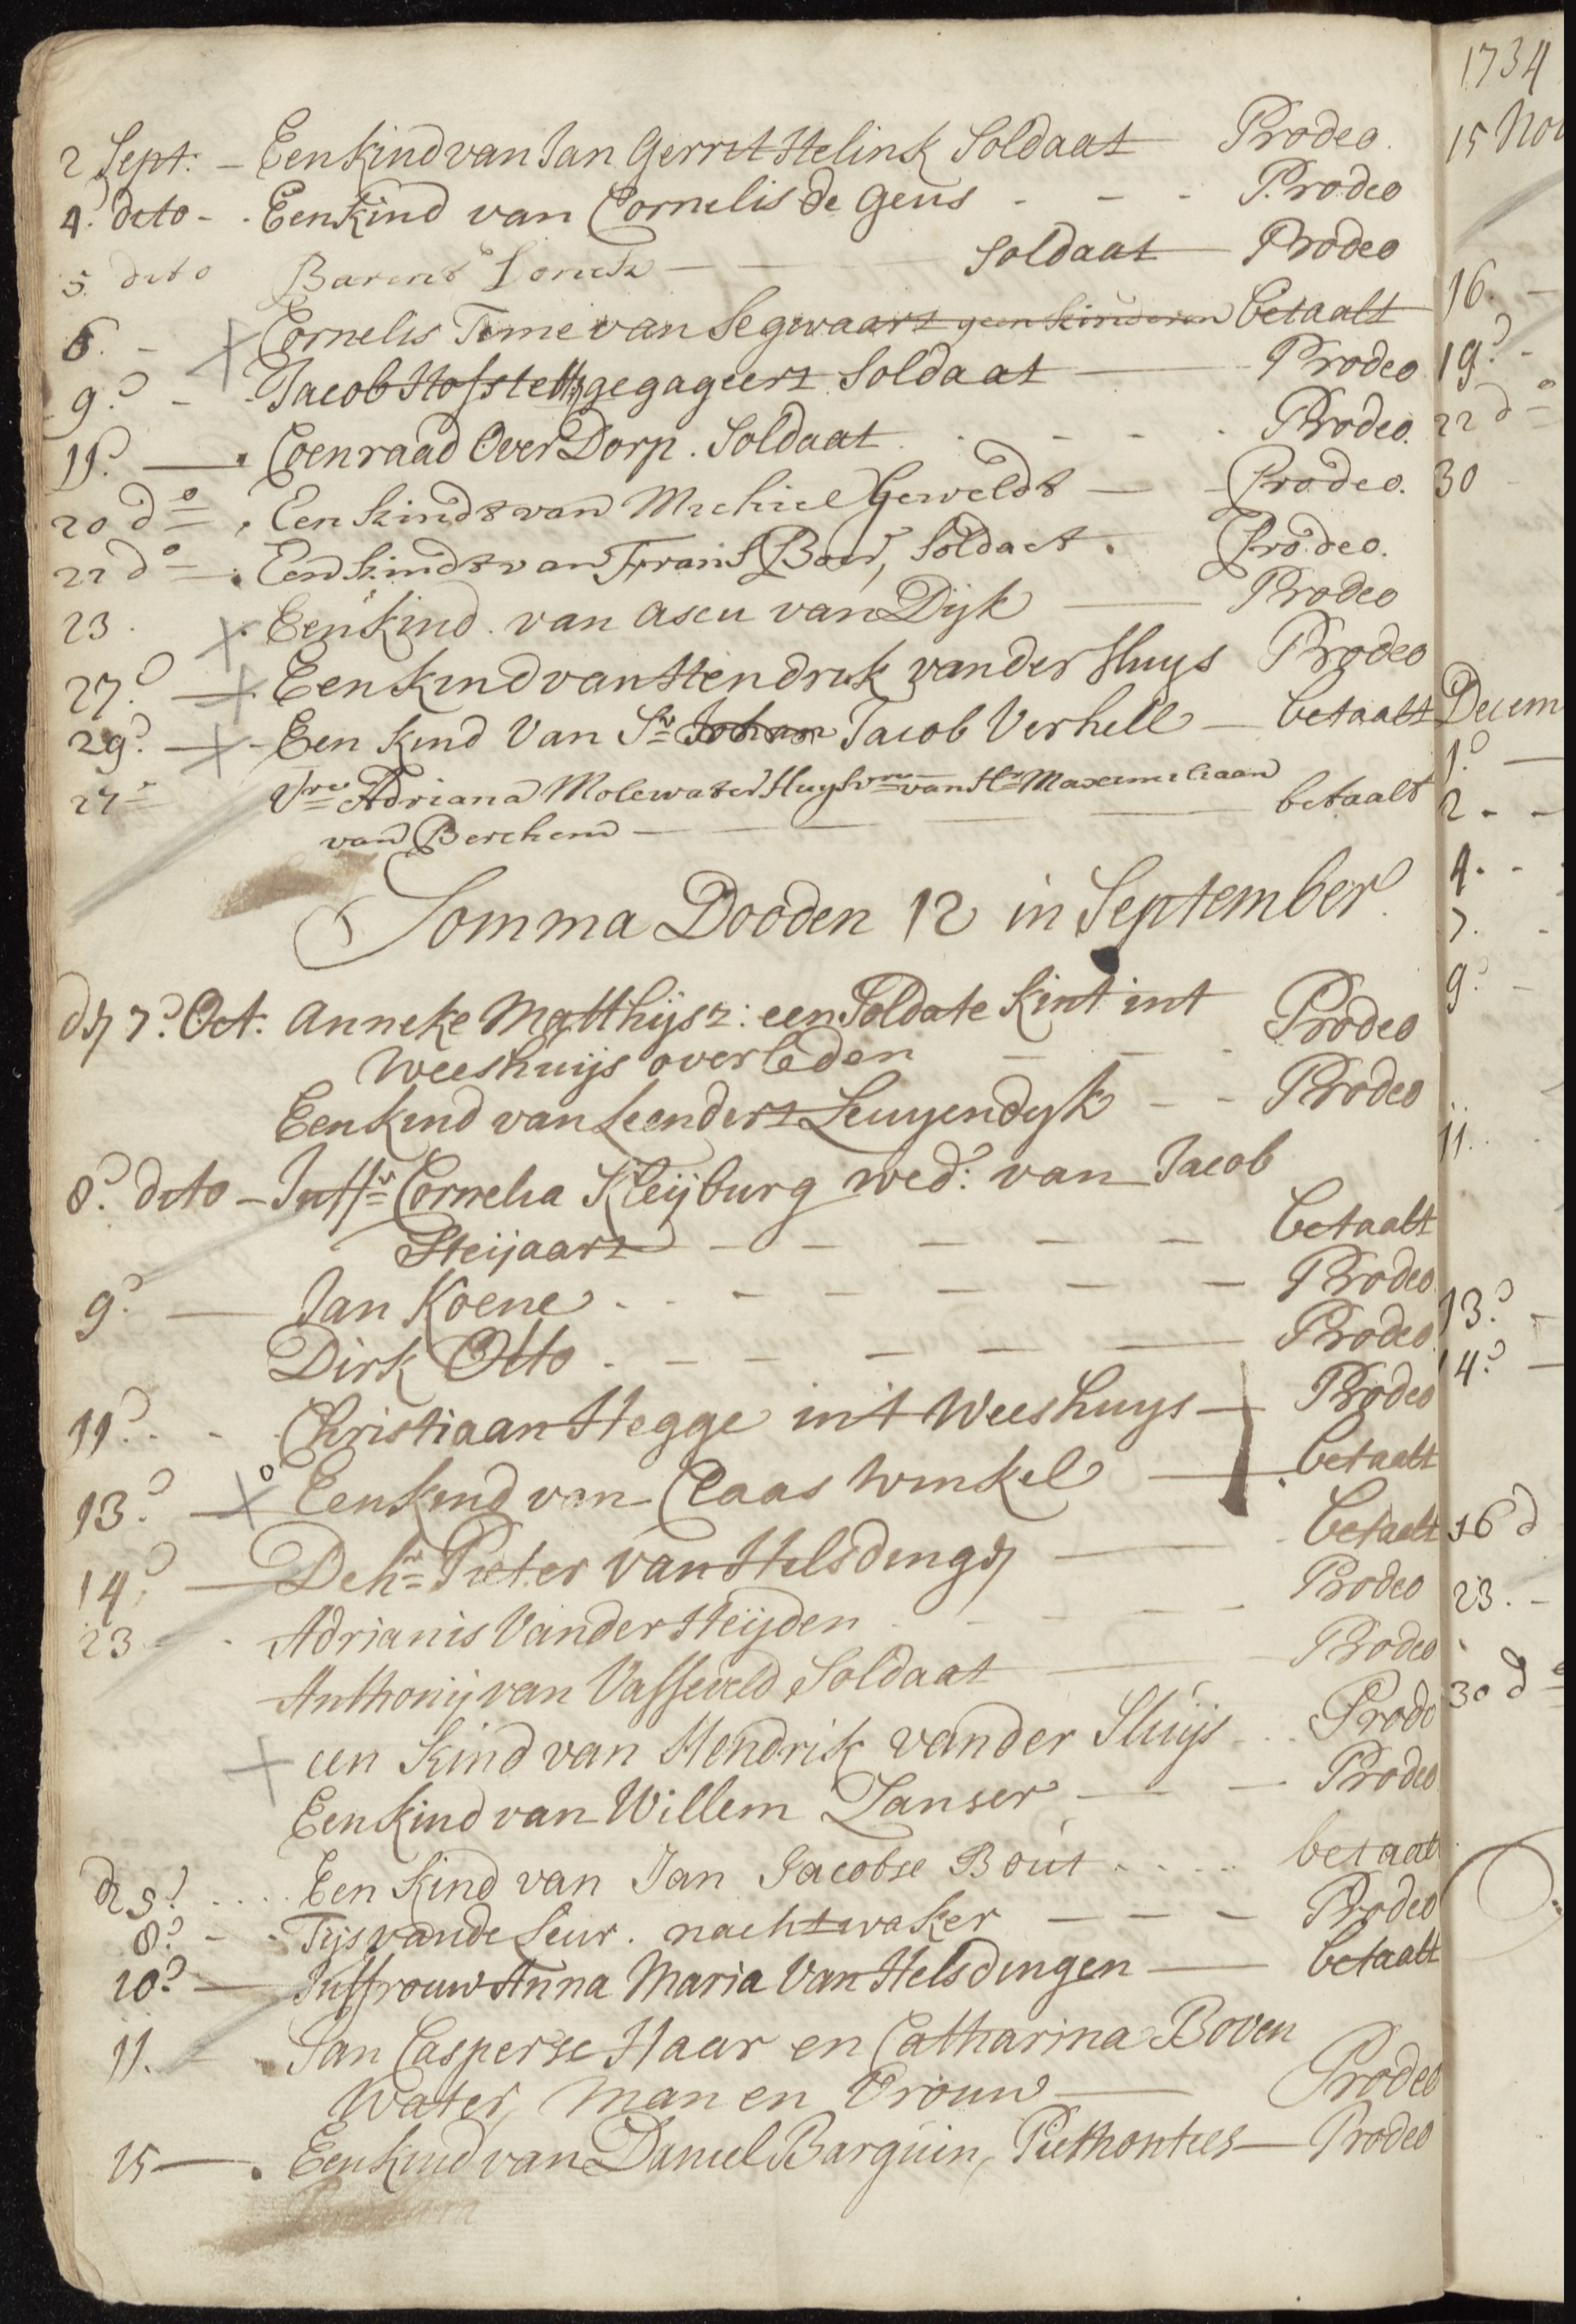 2 Sept: - Een kind van Jan Gerrit Stelink Soldaat Prodeo.
4: dito - - Een kind van Cornelis de Geus - - - Prodeo
5. dito Barent Lonck — — Soldaat Prodeo
6. - Cornelis Time van Segwaart geen kinderen betaalt
9.o - Jacob Hofstett gegageert Soldaat — Prodeo
11.o — Coenraad OverDorp. Soldaat . - - - Prodeo.
20 do . Een kindt van Michiel Geweldt — - Prodeo.
22 do . Een kindt van Frans Boer, Soldaet . Prodeo.
23. Een kind. van Aseu van Dijk — Prodeo
27.o — Een kind van Hendrik van der Sluys Prodeo
29.o — Een kind Van Sr Johan Jacob Verhell — betaalt
27 Vre Adriana Molewater Huysvre van Hr Maximiliaan
van Berchem — — — betaalt
Somma Dooden 12 in September.
dy 7.o Oct. Anneke Matthijsz: een Soldate kint int Prodeo
Weeshuijs overleden — -
Een kind van Leendert Leuyendyk - - Prodeo
8.o dito - Juffr Cornelia Kleijburg wed: van Jacob
Steijaart - — — — — betaalt
9.o — Jan Koene . . - — — — — Prodeo
Dirk Otto . - — — — — Prodeo
11.o - - Christiaan Hegge int Weeshuys — Prodeo
13.o — Een kind van Claas Winkel — . betaalt
14.o — De hr Pieter van Helsdingy — betaalt
23 - . Adrianis Vander Heijden . - — — Prodeo
Anthonij van Vasseveld Soldaat — Prodeo
een kind van Hendrik vander Sluijs . . Prodo
Een kind van Willem Lanser — — Prodeo
d 5.o . . . Een kind van Jan Jacobse Bout . . . . betaat
8.o - - Tijs vande Leur. nachtwaker — — — Prodeo
10.o — Juffrouw Anna Maria Van Helsdingen — betaalt
11. - Jan Casperse Haar en Catharina Boven
Water, Man en Vrouw — Prodeo
15 — . Een kind van Daniel Barguin, Piethonties — Prodeo
1734
15 Nov
16. -
19.o -
22 do
30
Decem
1.o —
2 - -
4. -
7. -
9.o -
11. .
13.o -
14.o —
16 d
23. -
30 do